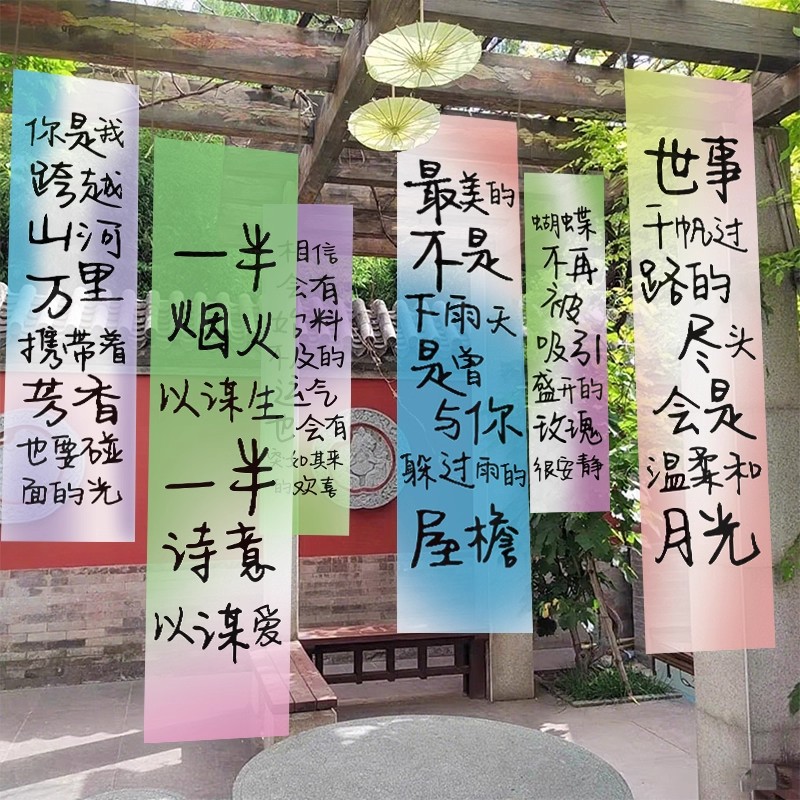 你是我
跨越
山河
万里
携带着
芳香
也要碰
面的光
一半
烟火
以谋生
一半
诗意
以谋爱
相信
会有
好料
不及的
运气
也会有
突如其来
的欢喜
最美的
不是
下雨天
是曾
与你
躲过雨的
屋檐
蝴蝶
不再
被
吸引
盛开的
玫瑰
很安静
世事
千帆过
路的
尽头
会是
温柔和
月光